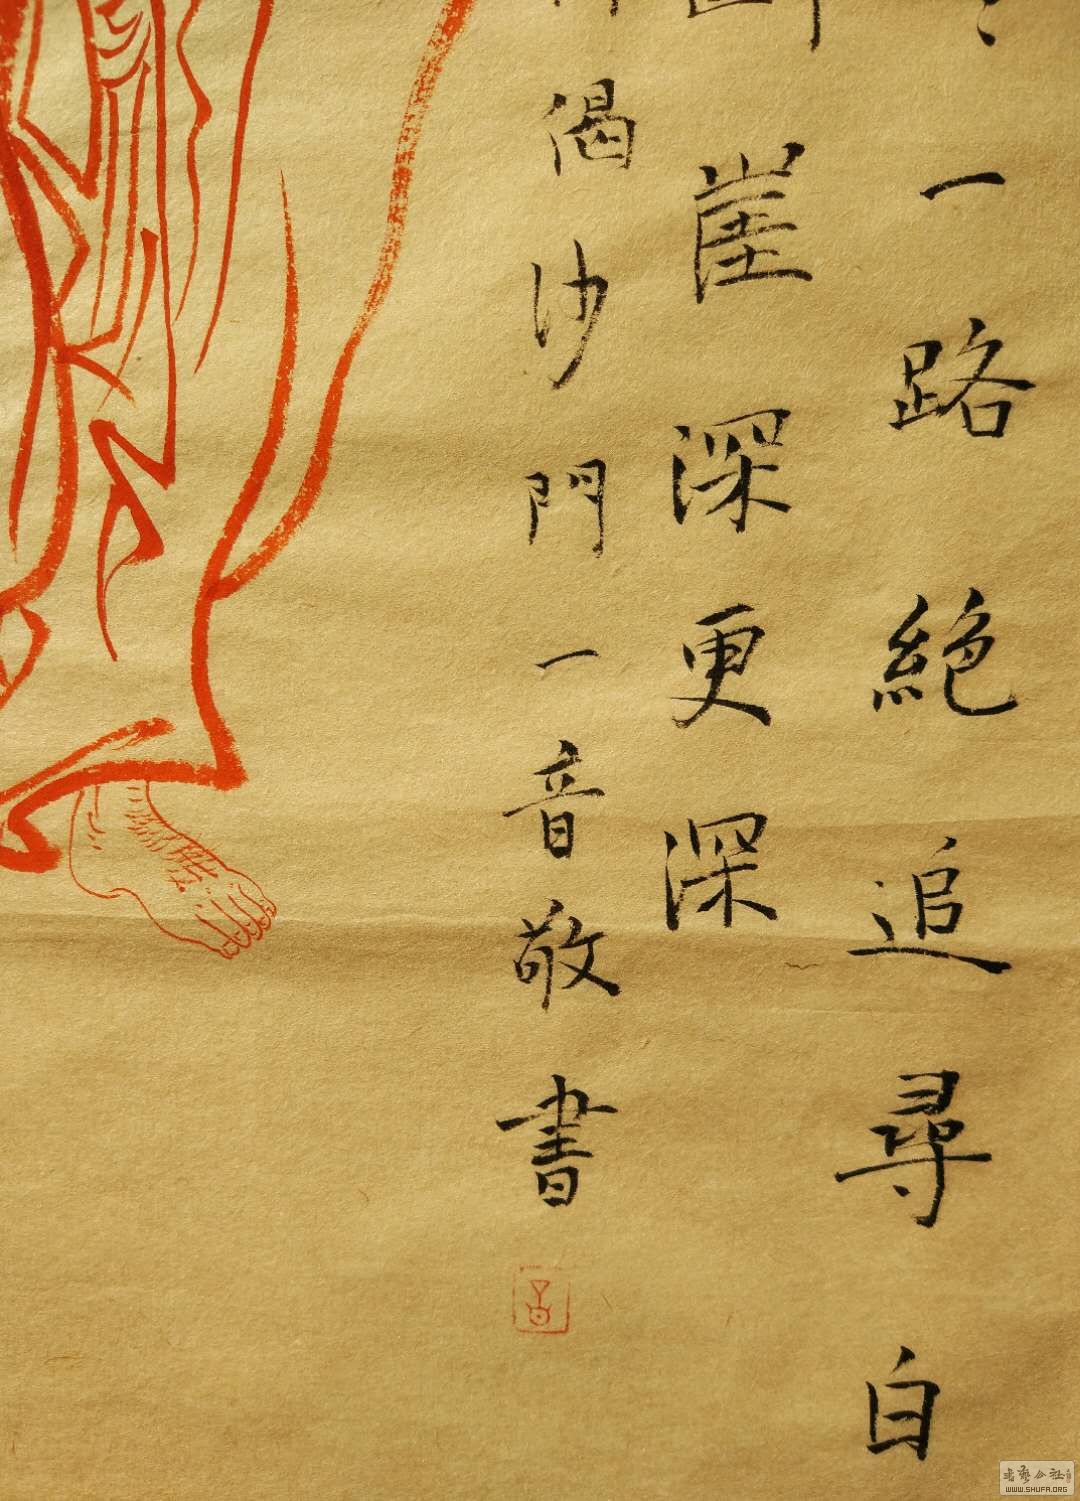 一路絕追尋白
崖深更深
偈沙門一音敬書
書藝公社
WWW.SHUFA.ORG